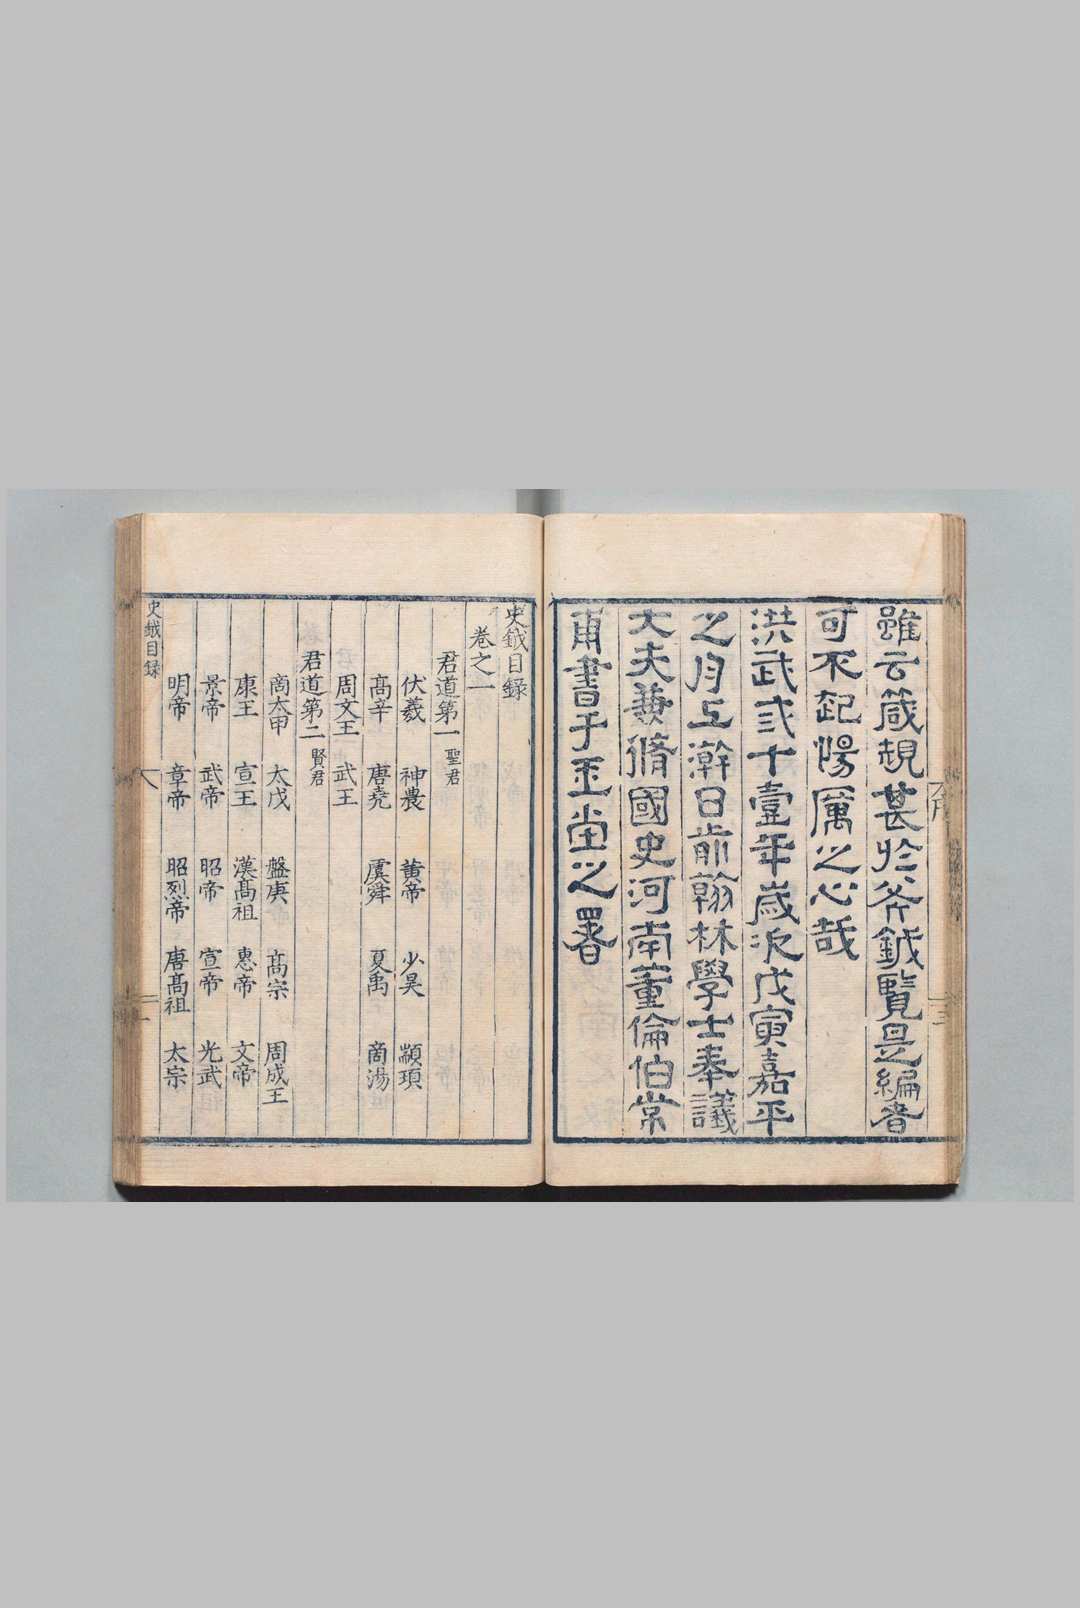 雖云箴規甚於斧鉞覽是編者
可不起惕厲之心哉
洪武弍十壹年歲次戊寅嘉平
之月上澣日前翰林學士奉議
大夫兼脩國史河南董倫伯常
甫書于玉堂之署
史鉞目録
卷之一
君道第一 聖君
伏羲 神農 黃帝 少昊 顓頊
高辛 唐堯 虞舜 夏禹 商湯
周文王 武王
君道第二 賢君
商太甲 太戊 盤庚 高宗 周成王
康王 宣王 漢高祖 惠帝 文帝
景帝 武帝 昭帝 宣帝 光武
明帝 章帝 昭烈帝 唐高祖 太宗
史鉞目録